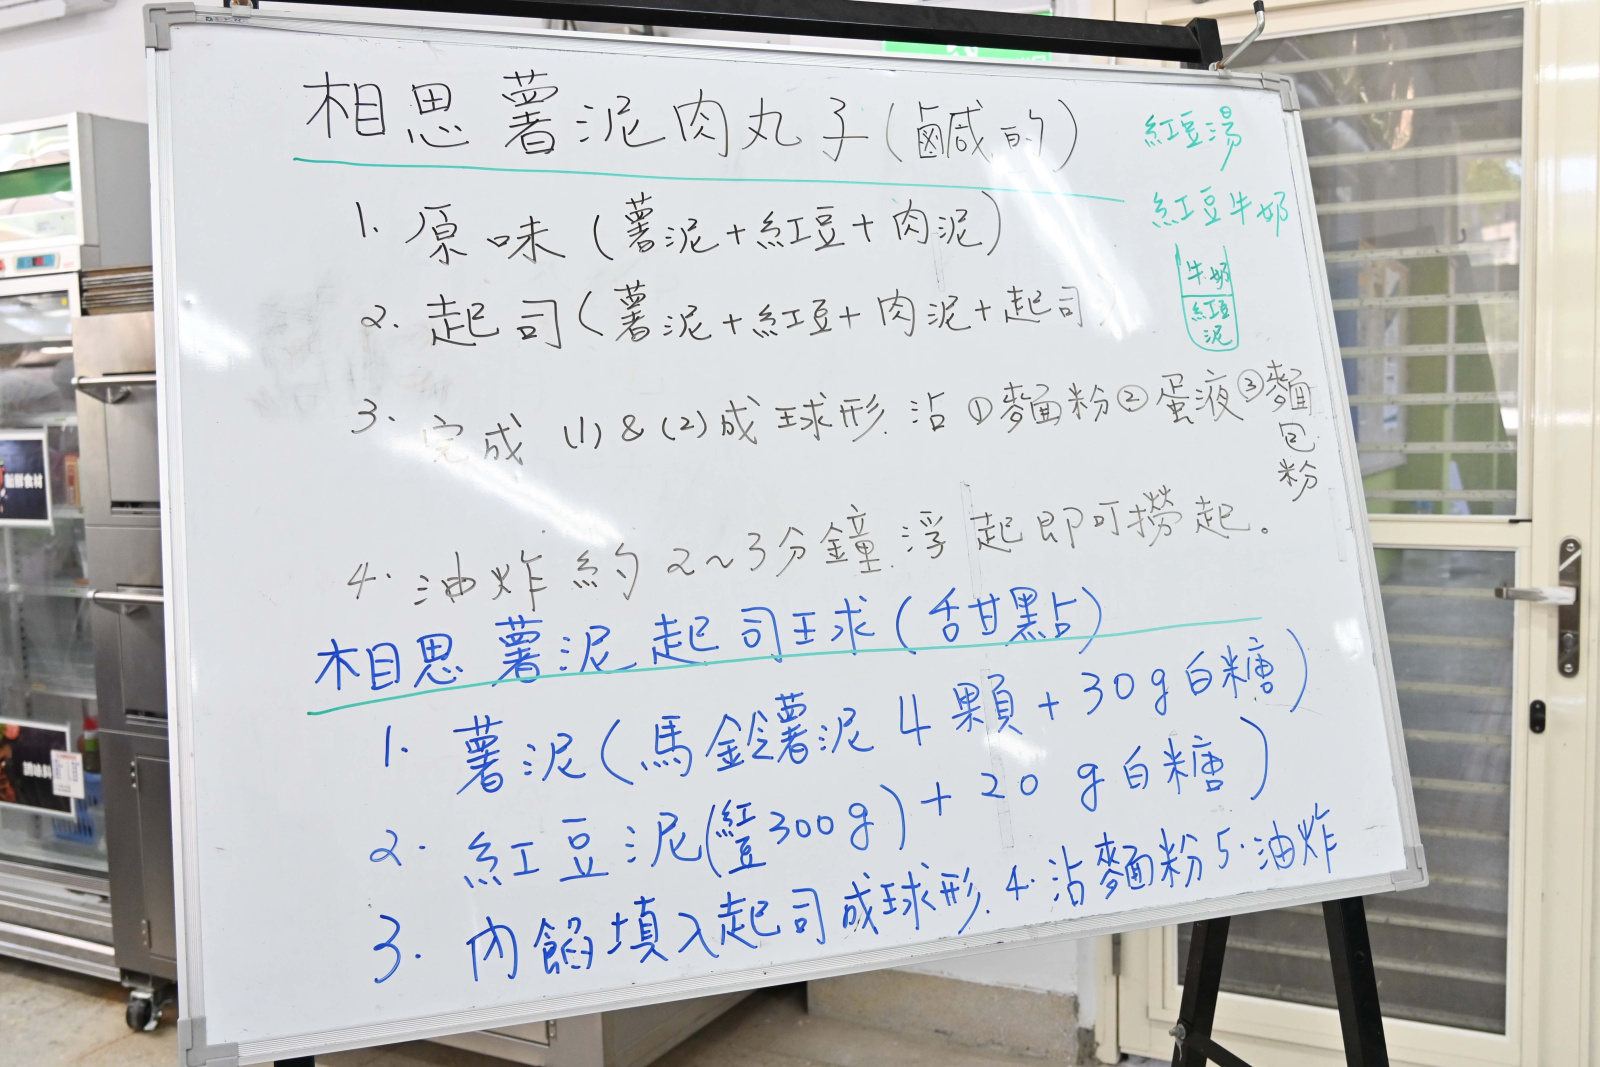 相思薯泥肉丸子(鹹的)
1. 原味 (薯泥+紅豆+肉泥)
2. 起司 (薯泥+紅豆+肉泥+起司)
3. 完成 (1) & (2) 成球形 沾 ①麵粉 ②蛋液 ③麵包粉
4. 油炸約 2~3分鐘 浮起即可撈起。
相思薯泥起司球(甜點)
1. 薯泥(馬鈴薯泥 4顆+30g白糖)
2. 紅豆泥(紅豆300g)+20g白糖)
3. 內餡填入起司成球形. 4. 沾麵粉 5. 油炸
紅豆湯
紅豆牛奶
牛奶
紅豆泥